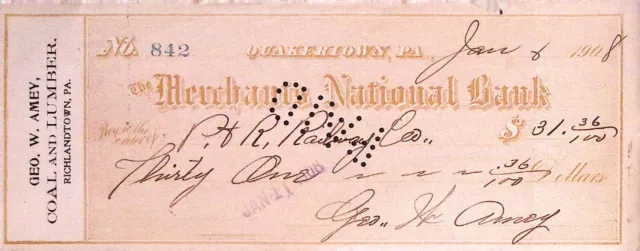 GEO. W. AMEY,
COAL AND LUMBER.
RICHLANDTOWN, PA.
No. 842 QUAKERTOWN, PA., Jan 8 1908
The Merchants National Bank
Pay to the order of P. & R. Railway Co.. $31.36/100
Thirty One ~ ~ ~ ~ .36/100 Dollars
JAN 11 1908
Geo.. W. Amey